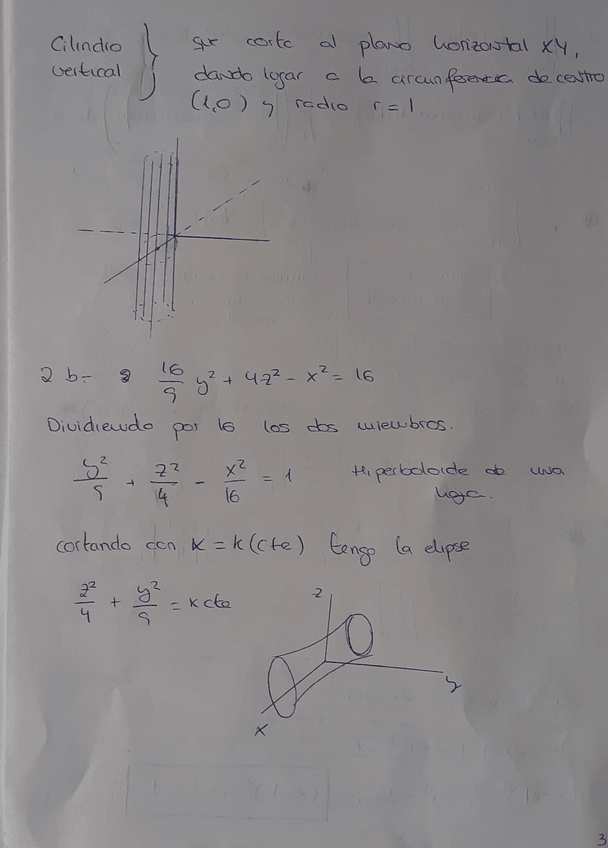 Cilindro } que corte al plano horizontal XY,
vertical dando lugar a la circunferencia de centro
(1,0) y radio r=1
2 b- 16/9 y² + 4z² - x² = 16
Dividiendo por 16 los dos miembros.
y²/9 + z²/4 - x²/16 = 1 Hiperboloide de una
hoja.
cortando con x = k (cte) tengo la elipse
z²/4 + y²/9 = k cte
z
y
x
3